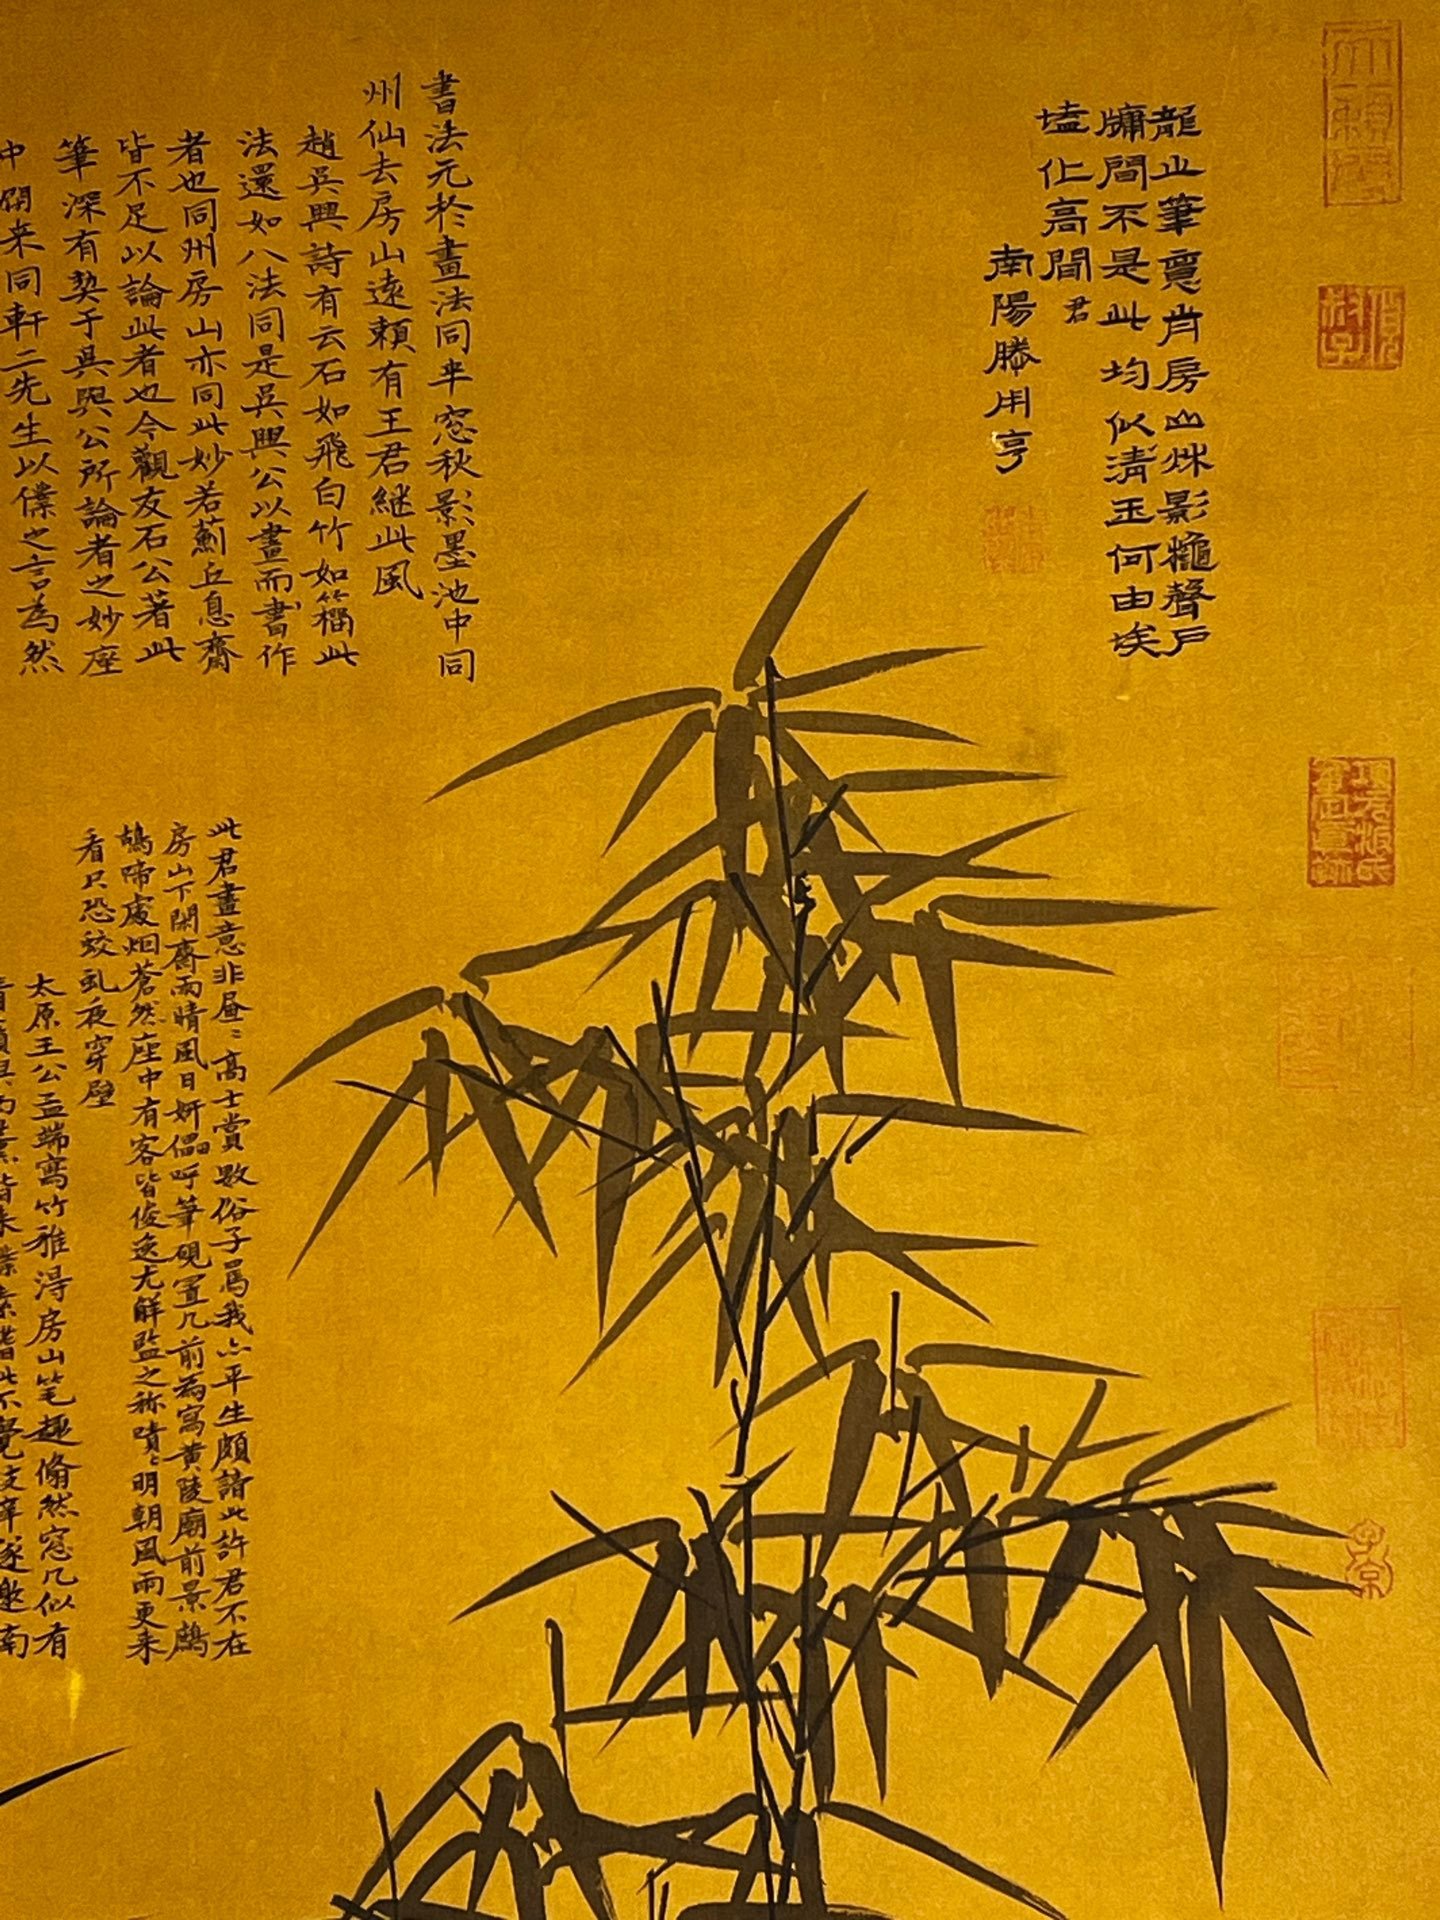 龍山筆意肖房山炑影龝聲戶
牗間不是此均似清玉何由埃
壒化高閒君
南陽滕用亨
書法元於畫法同半窓秋影墨池中同
州仙去房山遠賴有王君継此風
趙吳興詩有云石如飛白竹如籀此
法還如八法同是吳興公以畫而書作
者也同州房山亦同此妙若薊丘息齋
皆不足以論此者也今觀友石公著此
筆深有契于吳興公所論者之妙座
中開来同軒二先生以僕之言為然
此君畫意非屋〻高士賞歎俗子罵我亦平生頗諳此許君不在
房山下閑齋雨晴風日妍儡呼筆硯置几前為寫黃陵廟前景鷓
鴣啼處烟蒼然座中有客皆俊逸尤解監之称嘖〻明朝風雨更来
看只恐蛟虬夜穿壁
太原王公孟端寫竹雅淂房山笔趣翛然窓几似有